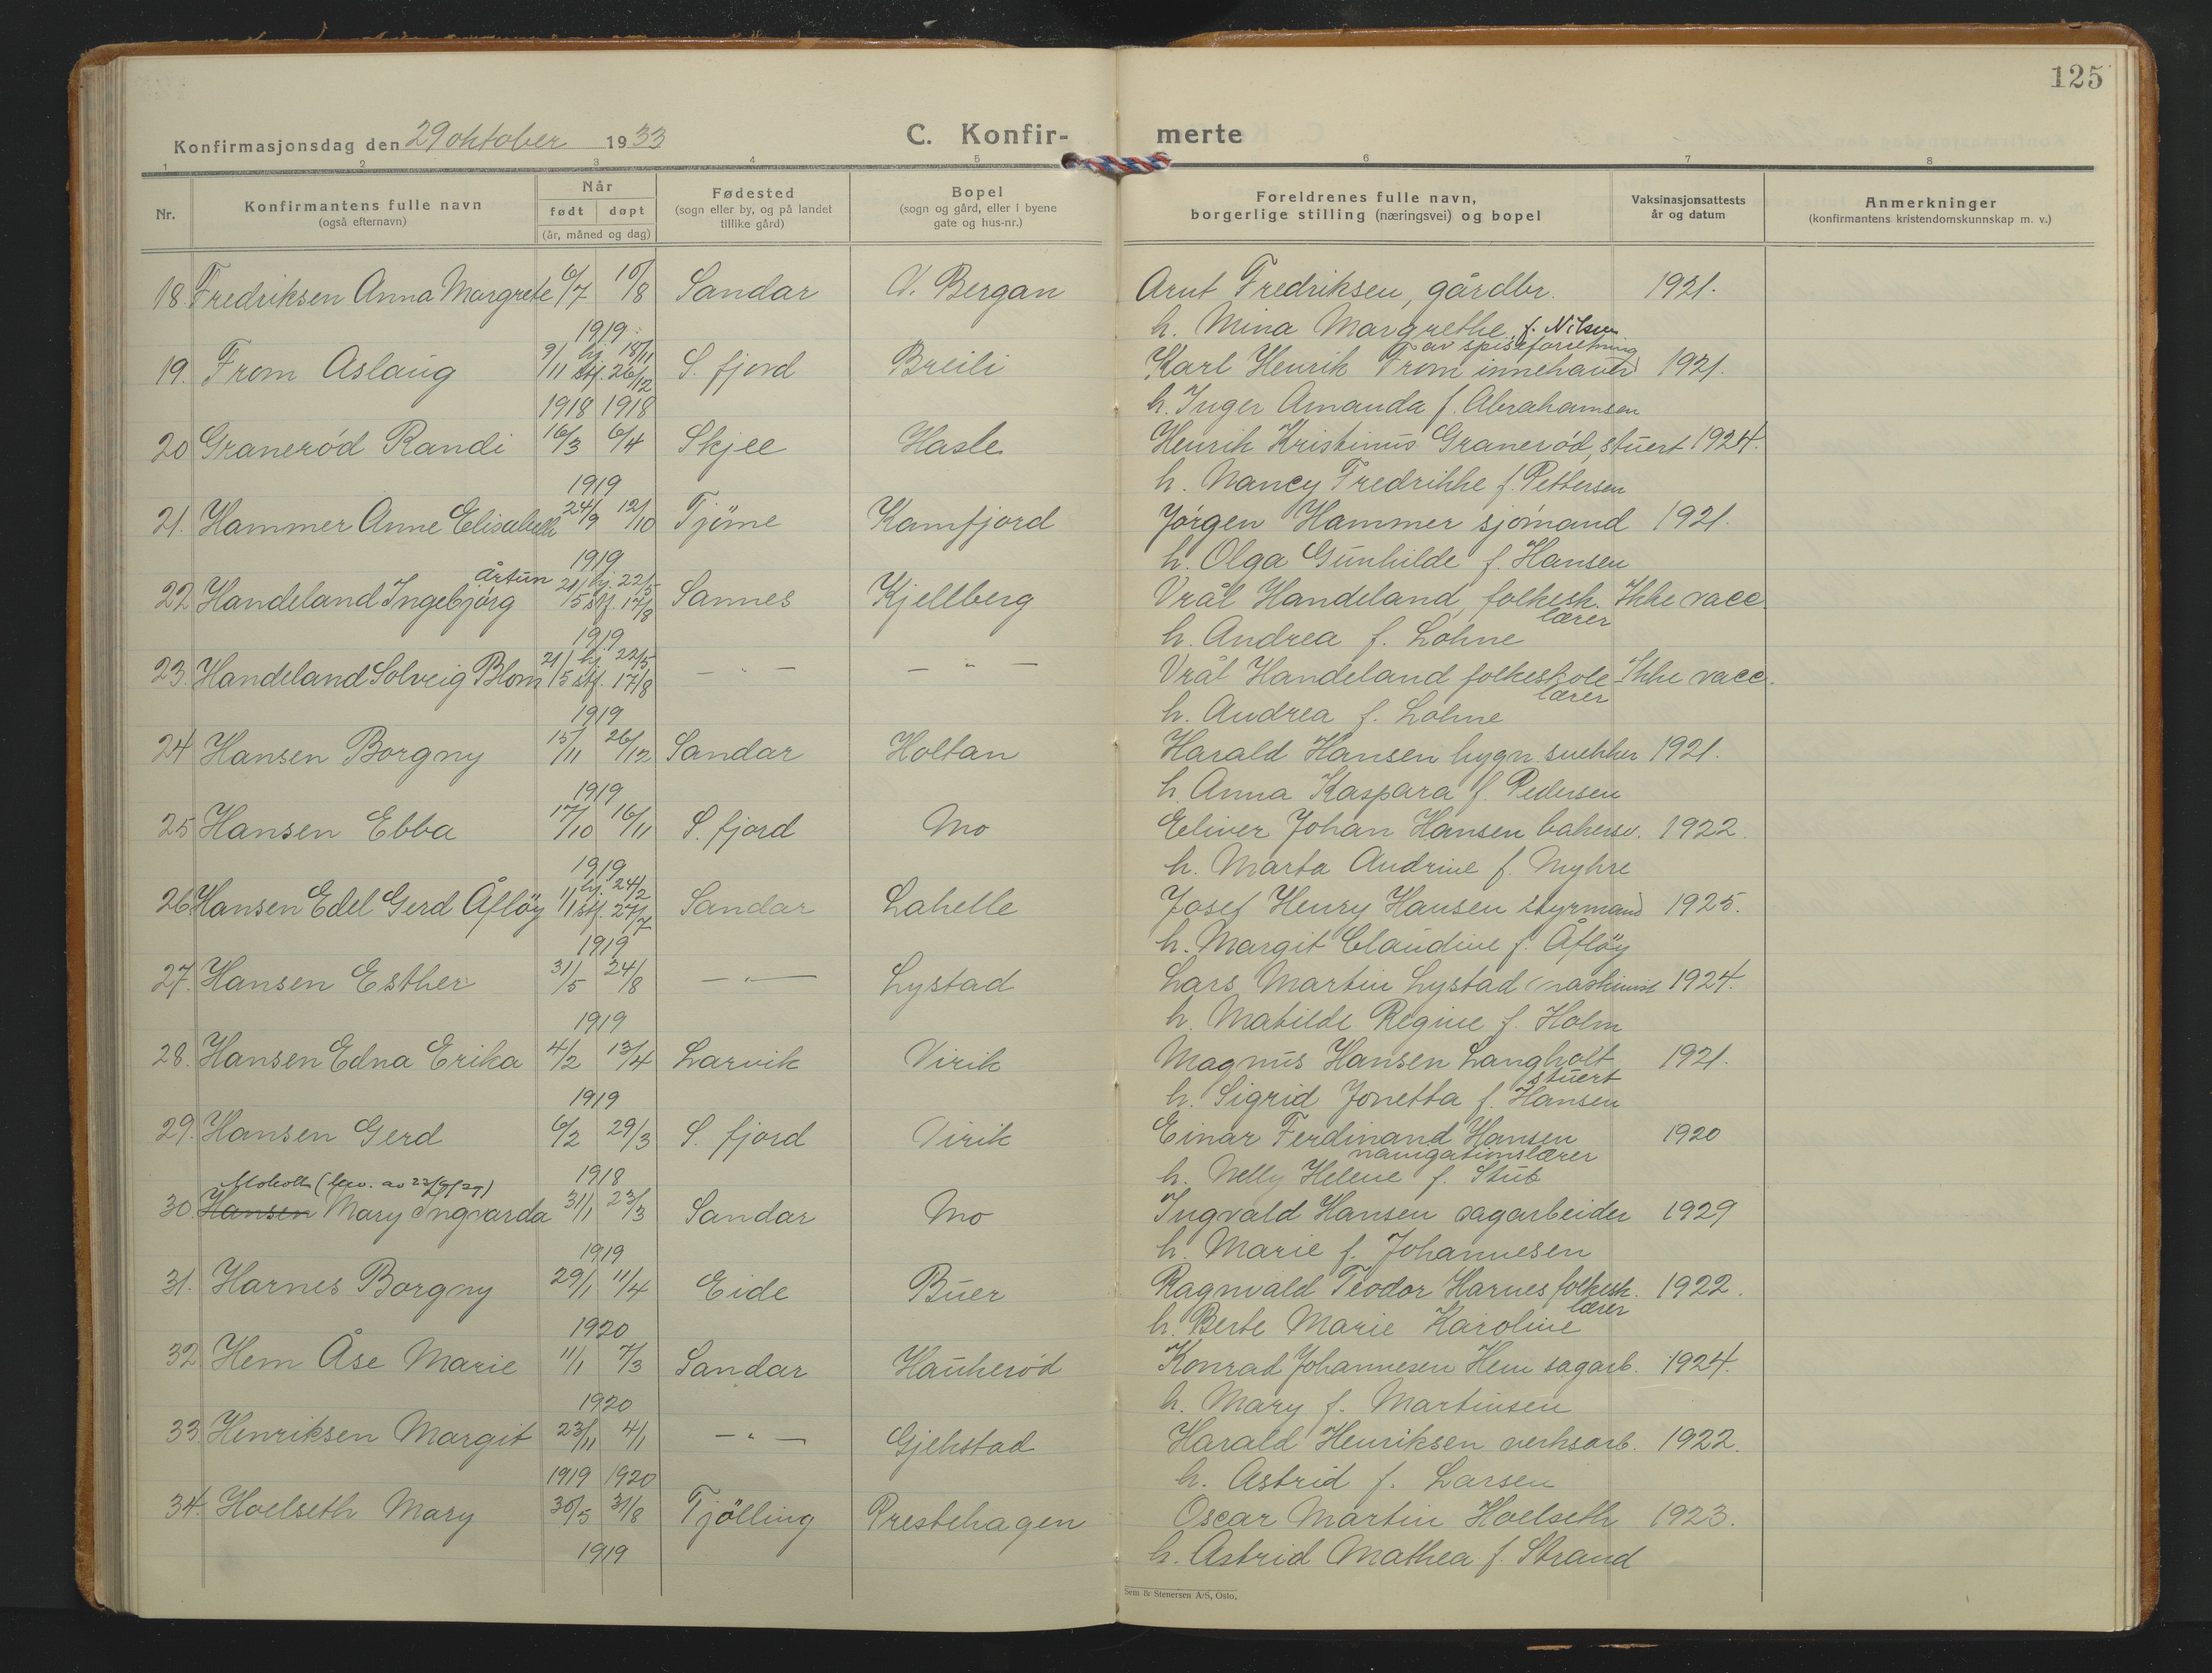 125
Konfirmasjonsdag den 29 oktober 1933
C. Konfir- merte
1 2 3 4 5 6 7 8
Nr.
Konfirmantens fulle navn
(også efternavn)
Når
født døpt
(år, måned og dag)
Fødested
(sogn eller by, og på landet
tillike gård)
Bopel
(sogn og gård, eller i byene
gate og hus-nr.)
Foreldrenes fulle navn,
borgerlige stilling (næringsvei) og bopel
Vaksinasjonsattests
år og datum
Anmerkninger
(konfirmantens kristendomskunnskap m. v.)
18 Fredriksen Anna Margrete 6/7 10/8 Sandar V. Bergan Arnt Fredriksen, gårdbr. 1921.
1919 h. Mina Margrethe, f. Nilsen
hj. 18/11 av spiseforretning
19. From Aslaug 9/11 stf. 26/12 S. fjord Breili Karl Henrik From innehaver 1921.
1918 1918 h. Inger Amanda f. Abrahamsen
20 Granerød Randi 16/3 6/4 Skjee Hasle Henrik Kristinus Granerød, stuert 1924.
1919 h. Nancy Fredrikke f. Pettersen
21. Hammer Anne Elisabeth 24/9 12/10 Tjöme Kamfjord Jørgen Hammer sjømand 1921.
1919 h. Olga Gunhilde f. Hansen
Årtun hj. 22/5
22 Handeland Ingebjørg 21/5 stf. 17/8 Sannes Kjellberg Vrål Handeland, folkesk. Ikke vacc.
lærer
1919 h. Andrea f. Lohne
hj. 22/5
23. Handeland Solveig Blom 21/5 stf. 17/8 — " — — " — Vrål Handeland folkeskole Ikke vacc.
lærer
1919 h. Andrea f. Lohne
24 Hansen Borgny 15/11 26/12 Sandar Holtan Harald Hansen bygn. snekker 1921.
1919 h. Anna Kaspara f. Pedersen
25 Hansen Ebba 17/10 16/11 S. fjord Mo Eeliver Johan Hansen bakersv. 1922.
1919 h. Marta Andrine f. Myhre
hj. 24/2
26 Hansen Edel Gerd Åfløy 1/1 stf. 27/7 Sandar Lahelle Josef Henry Hansen styrmand 1925.
1919 h. Margit Claudine f. Åfløy
27. Hansen Esther 31/5 24/8 — " — Lystad Lars Martin Lystad maskinist 1924.
1919 h. Matilde Regine f. Holm
28. Hansen Edna Erika 4/2 13/4 Larvik Virik Magnus Hansen Langholt 1921.
stuert
1919 h. Sigrid Jonetta f. Hansen
29. Hansen Gerd 6/2 29/3 S. fjord Virik Einar Ferdinand Hansen 1920
navigationslærer
1918 h. Nelly Helene f. Stub
Moholt (bev. av 23/9/29)
30. Hansen Mary Ingvarda 31/1 23/3 Sandar Mo Ingvald Hansen sagarbeider 1929
1919 h. Marie f. Johannesen
31. Harnes Borgny 29/1 11/4 Eide Buer Ragnvald Teodor Harnes folkesk. 1922.
lærer
1920 h. Berte Marie Karoline
32 Hem Åse Marie 11/1 7/3 Sandar Haukerød Konrad Johannesen Hem sagarb. 1924.
1920 h. Mary f. Martinsen
33. Henriksen Margit 23/11 4/1 — " — Gjekstad Harald Henriksen verksarb. 1922.
1919 1920 h. Astrid f. Larsen
34. Hoelseth Mary 30/5 31/8 Tjölling Prestehagen Oscar Martin Hoelseth 1923.
1919 h. Astrid Mathea f. Strand
Sem & Stenersen A/S, Oslo.